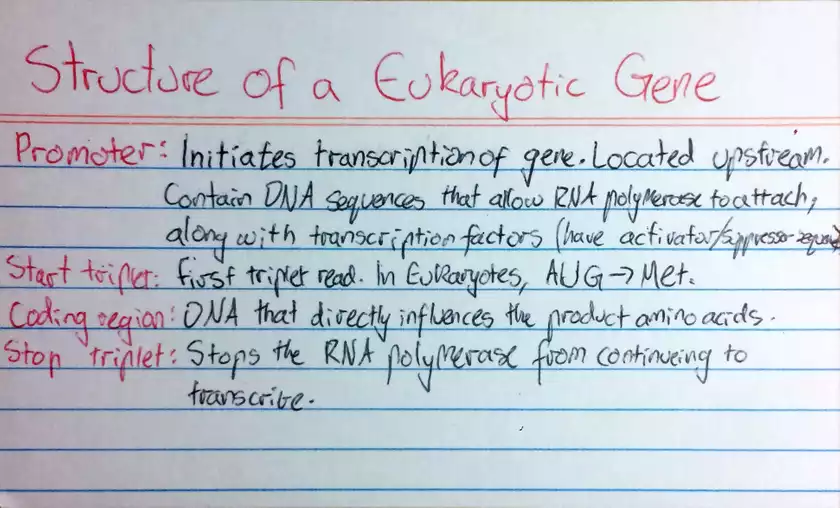 Structure of a Eukaryotic Gene
Promoter: Initiates transcription of gene. Located upstream.
Contain DNA sequences that allow RNA polymerase to attach,
along with transcription factors (have activator/suppressor
Start triplet: First triplet read. In Eukaryotes, AUG → Met.
Coding region: DNA that directly influences the product amino acids.
Stop triplet: Stops the RNA polymerase from continueing to
transcribe.